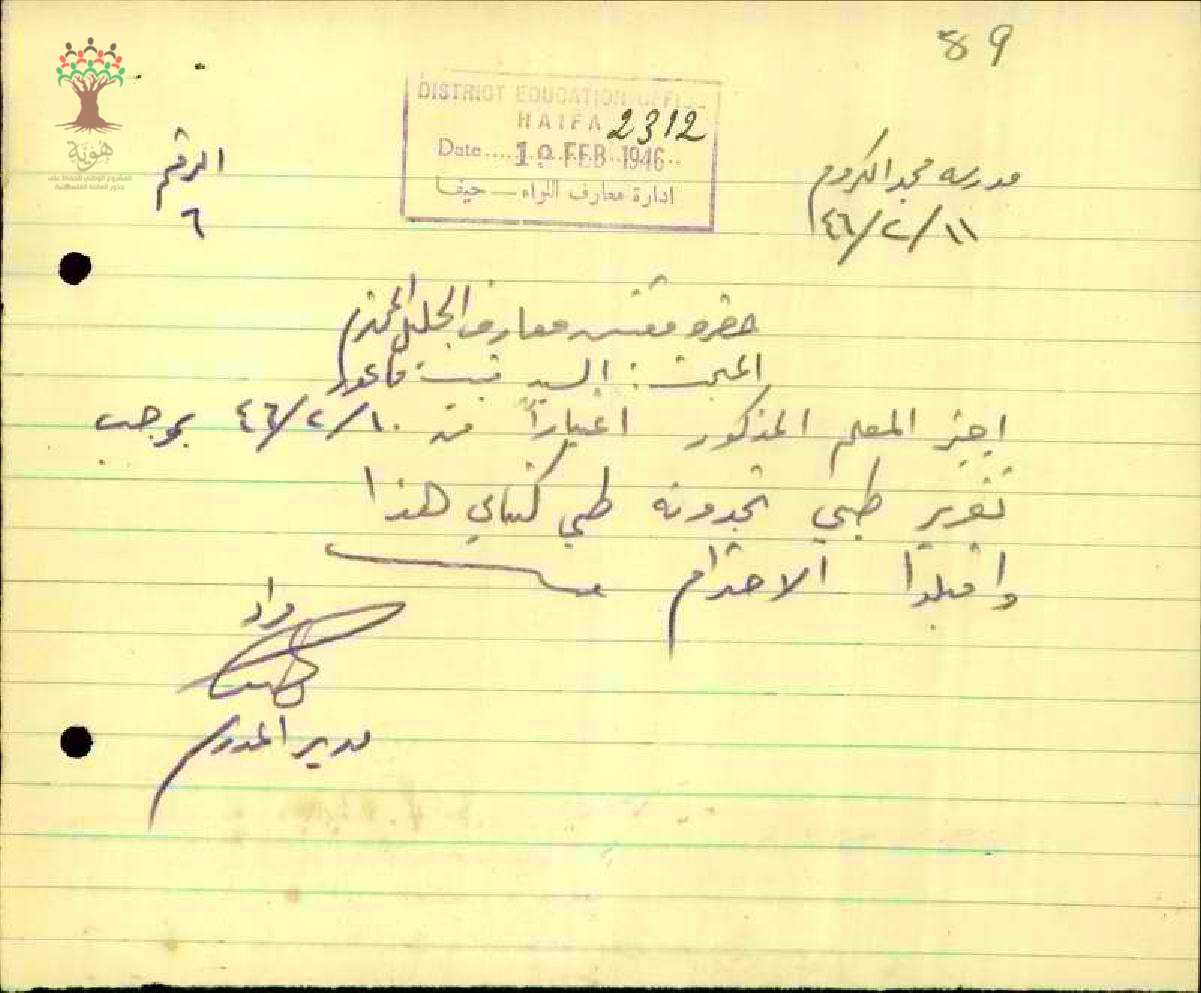 89
DISTRICT EDUCATION OFFICE
HAIFA 2312
Date.... 19 FEB 1946..
ادارة معارف اللواء — حيفا
هوية
المشروع الوطني للحفاظ على
جذور العائلة الفلسطينية
مدرسة مجد الكروم
الرقم
٤٦/٢/١١
٦
حضرة مفتش معارف الجليل المحترم
المبحث : السيد قاعور
اجيز المعلم المذكور اعتباراً من ٤٦/٢/١٠ بموجب
تقرير طبي تجدونه طي كتابي هذا
واقبلوا الاحترام
مدير المدرسة